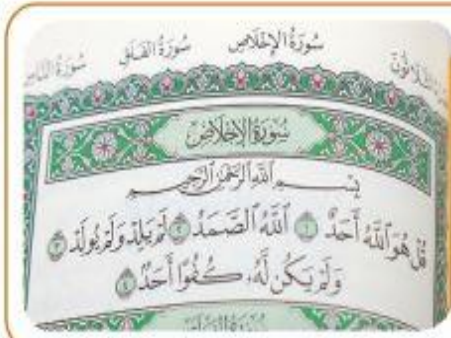 سُورَةُ الإِخْلَاصِ سُورَةُ الفَلَقِ سُورَةُ النَّاسِ
سُورَةُ الإِخْلَاصِ
بِسْمِ اللَّهِ الرَّحْمَٰنِ الرَّحِيمِ
قُلْ هُوَ اللَّهُ أَحَدٌ ١ اللَّهُ الصَّمَدُ ٢ لَمْ يَلِدْ وَلَمْ يُولَدْ ٣
وَلَمْ يَكُن لَّهُ كُفُوًا أَحَدٌ ٤